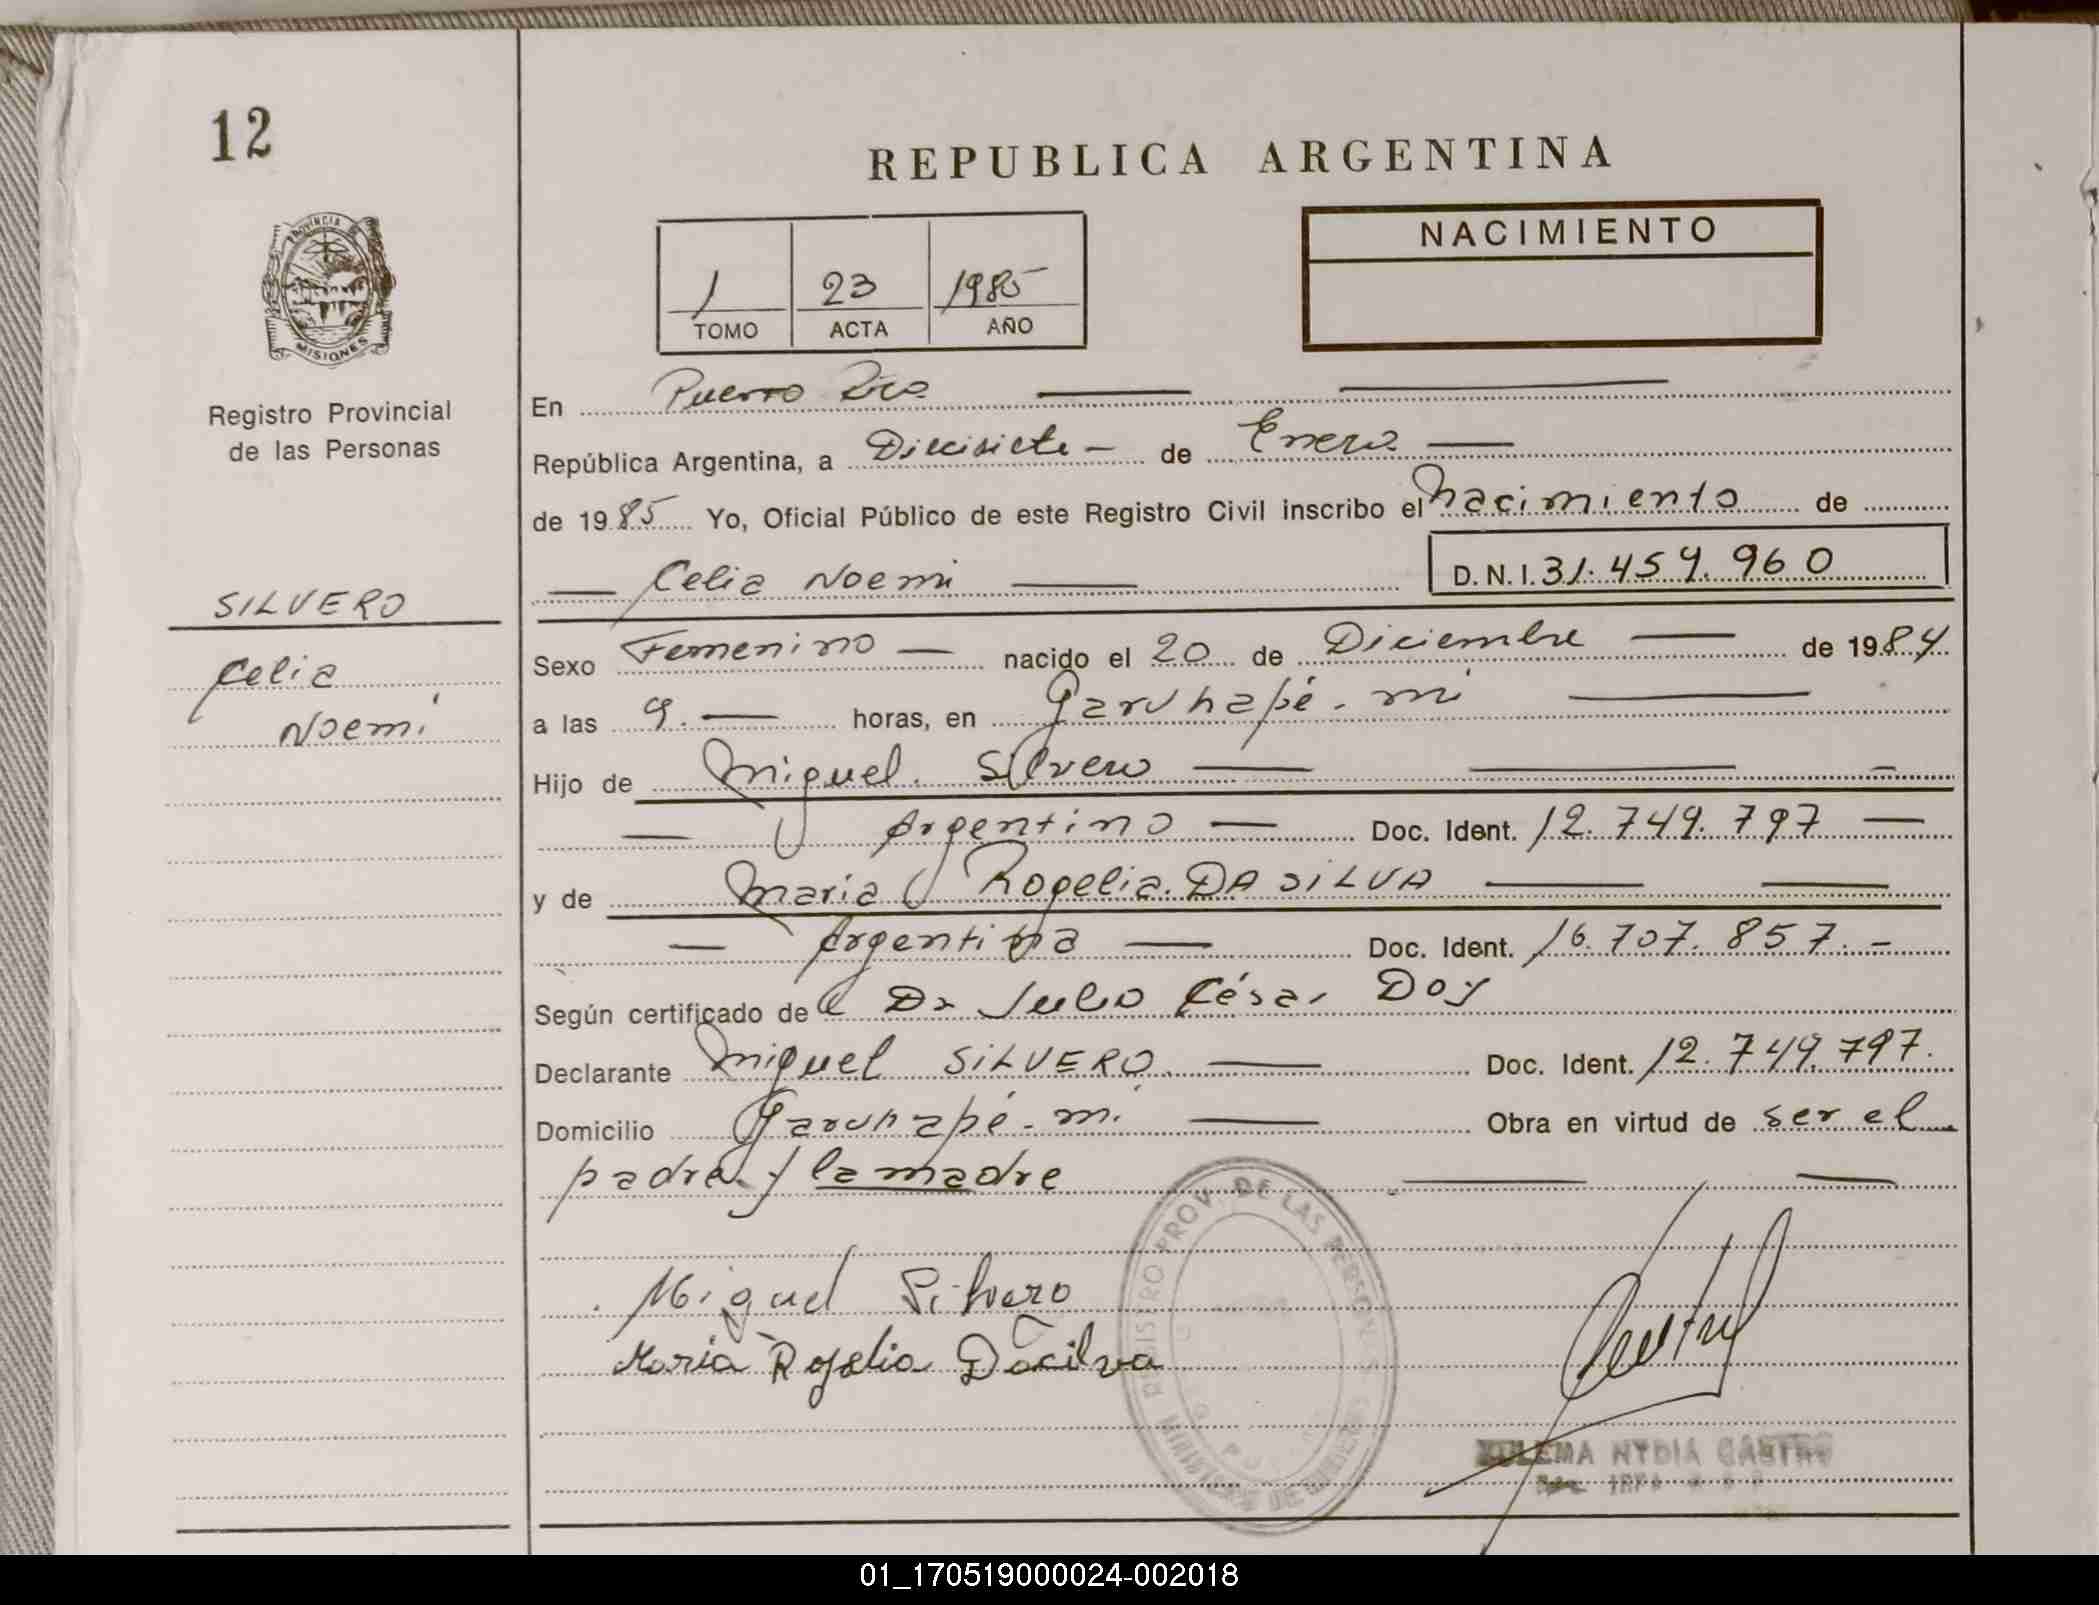 12
PROVINCIA DE
MISIONES
Registro Provincial
de las Personas
SILVERO
Celia
Noemí
REPUBLICA ARGENTINA
1 23 1985
TOMO ACTA AÑO
NACIMIENTO
En Puerto Rico
República Argentina, a Diecisiete - de Enero
de 1985 Yo, Oficial Público de este Registro Civil inscribo el nacimiento de
Celia Noemi D.N.I. 31.459.960
Sexo Femenino nacido el 20 de Diciembre de 1984
a las 9. horas, en Garuhapé-mi
Hijo de Miguel Silvero
Argentino Doc. Ident. 12.749.797
y de Maria Rogelia DA SILVA
Argentina Doc. Ident. 16.707.857.-
Según certificado de Dr Julio César Doy
Declarante Miguel SILVERO Doc. Ident. 12.749.797.
Domicilio Garuhapé-mi Obra en virtud de ser el
padre y la madre
REGISTRO PROV. DE LAS PERSONAS
Miguel Silvero
Maria Rogelia Dasilva
NYDIA CASTRO
01_170519000024-002018